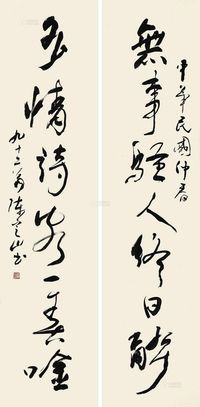 中華民國仲春
無事騷人終日醉
多情詩客一春唫
九十三翁陳山書